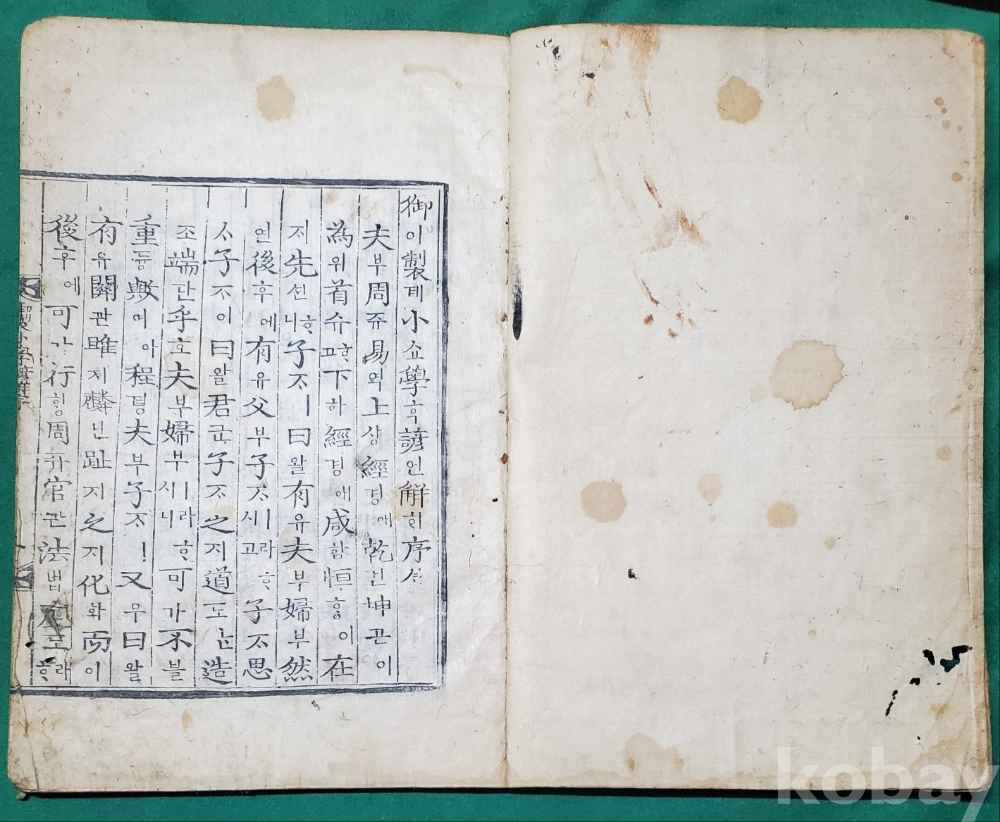 御어製졔小쇼學ᄒᆞᆨ諺언解ᄒᆡ序셔
夫부周쥬易역上샹經경애乾건坤곤이
為위首슈ᄒᆞ고下하經경애咸함恒ᄒᆞᆼ이在
ᄌᆡ先션ᄒᆞ니子ᄌᆞㅣ曰왈有유夫부婦부然
연後후에有유父부子ᄌᆞㅣ라ᄒᆞ시고子ᄌᆞ思
ᄉᆞ子ᄌᆞㅣ曰왈君군子ᄌᆞ之지道도ᄂᆞᆫ造
조端단乎호夫부婦부ㅣ라ᄒᆞ시니可가不블
重듕與여아程뎡夫부子ᄌᆞㅣ又우曰왈
有유關관雎져麟닌趾지之지化화而이
後후에可가行ᄒᆡᆼ周쥬官관法법度도ㅣ라ᄒᆞ
製小學諺解序
kobay